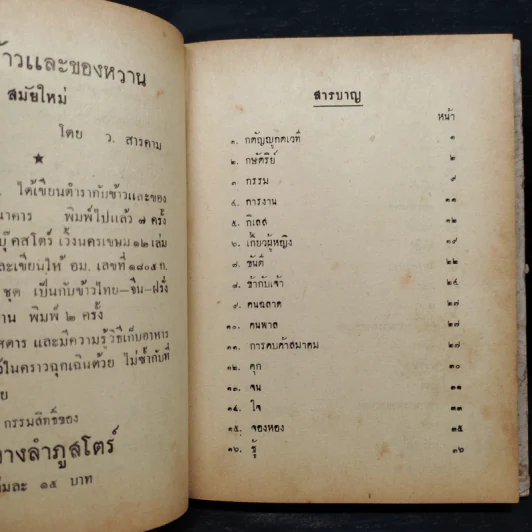 ้าวและของหวาน
สมัยใหม่
โดย ว. สารคาม
ได้เขียนตำรากับข้าวและของ
นาคาร พิมพ์ไปแล้ว ๗ ครั้ง
บุ๊คสโตร์ เวิ้งนครเขษม ๑๒ เล่ม
ละเขียนให้ อม. เลขที่ ๑๘๐๕ ก.
ชุด เป็นกับข้าวไทย-จีน-ฝรั่ง
าน พิมพ์ ๒ ครั้ง
สดาร และมีความรู้วิธีเก็บอาหาร
้ในคราวฉุกเฉินด้วย ไม่ซ้ำกับที่
ย
กรรมสิทธิ์ของ
างลำภูสโตร์
่มละ ๑๕ บาท
สารบาญ
หน้า
๑. กตัญญูกตเวที ๑
๒. กษัตริย์ ๒
๓. กรรม ๙
๔. การงาน ๑๑
๕. กิเลส ๑๒
๖. เกี้ยวผู้หญิง ๑๙
๗. ขันติ ๒๒
๘. ข้ากับเจ้า ๒๔
๙. คนฉลาด ๒๗
๑๐. คนพาล ๒๗
๑๑. การคบค้าสมาคม ๒๗
๑๒. คุก ๓๐
๑๓. จน ๓๑
๑๔. ใจ ๓๓
๑๕. จองหอง ๓๕
๑๖. ชู้ ๓๖